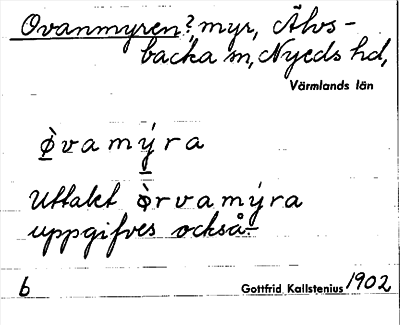 Ovanmyren?, myr, Älvs-
backa sn, Nyeds hd,
Värmlands län
ò̱vamý̱ra
Uttalet òrvamýra
uppgifves också
6 Gottfrid Kallstenius 1902